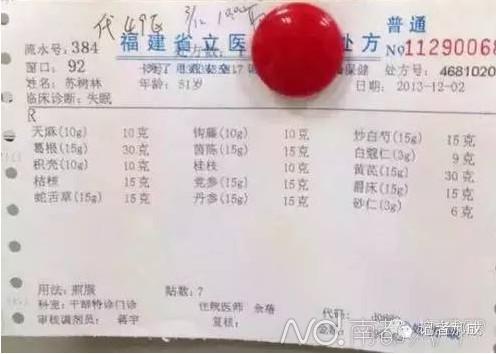 代49元 3/12
流水号: 384 福建省立医 处方 普通
窗口: 92 №11290068
姓名: 苏树林 年龄: 51岁 保健 处方号: 4681020
临床诊断: 失眠 日期: 2013-12-02
R
天麻(10g) 10克 钩藤(10g) 10克 炒白芍(15g) 15克
葛根(15g) 30克 茵陈(15g) 15克 白蔻仁(3g) 9克
枳壳(10g) 10克 桂枝 10克 黄芪(15g) 30克
桔核 15克 党参(15g) 15克 爵床(15g) 15克
蛇舌草(15g) 15克 丹参(15g) 15克 砂仁(3g) 6克
用法: 煎服 贴数: 7
科室: 干部特诊门诊 住院医师 余蓓 代码:
审核调剂员: 蒋宇 复核:
记者郝成